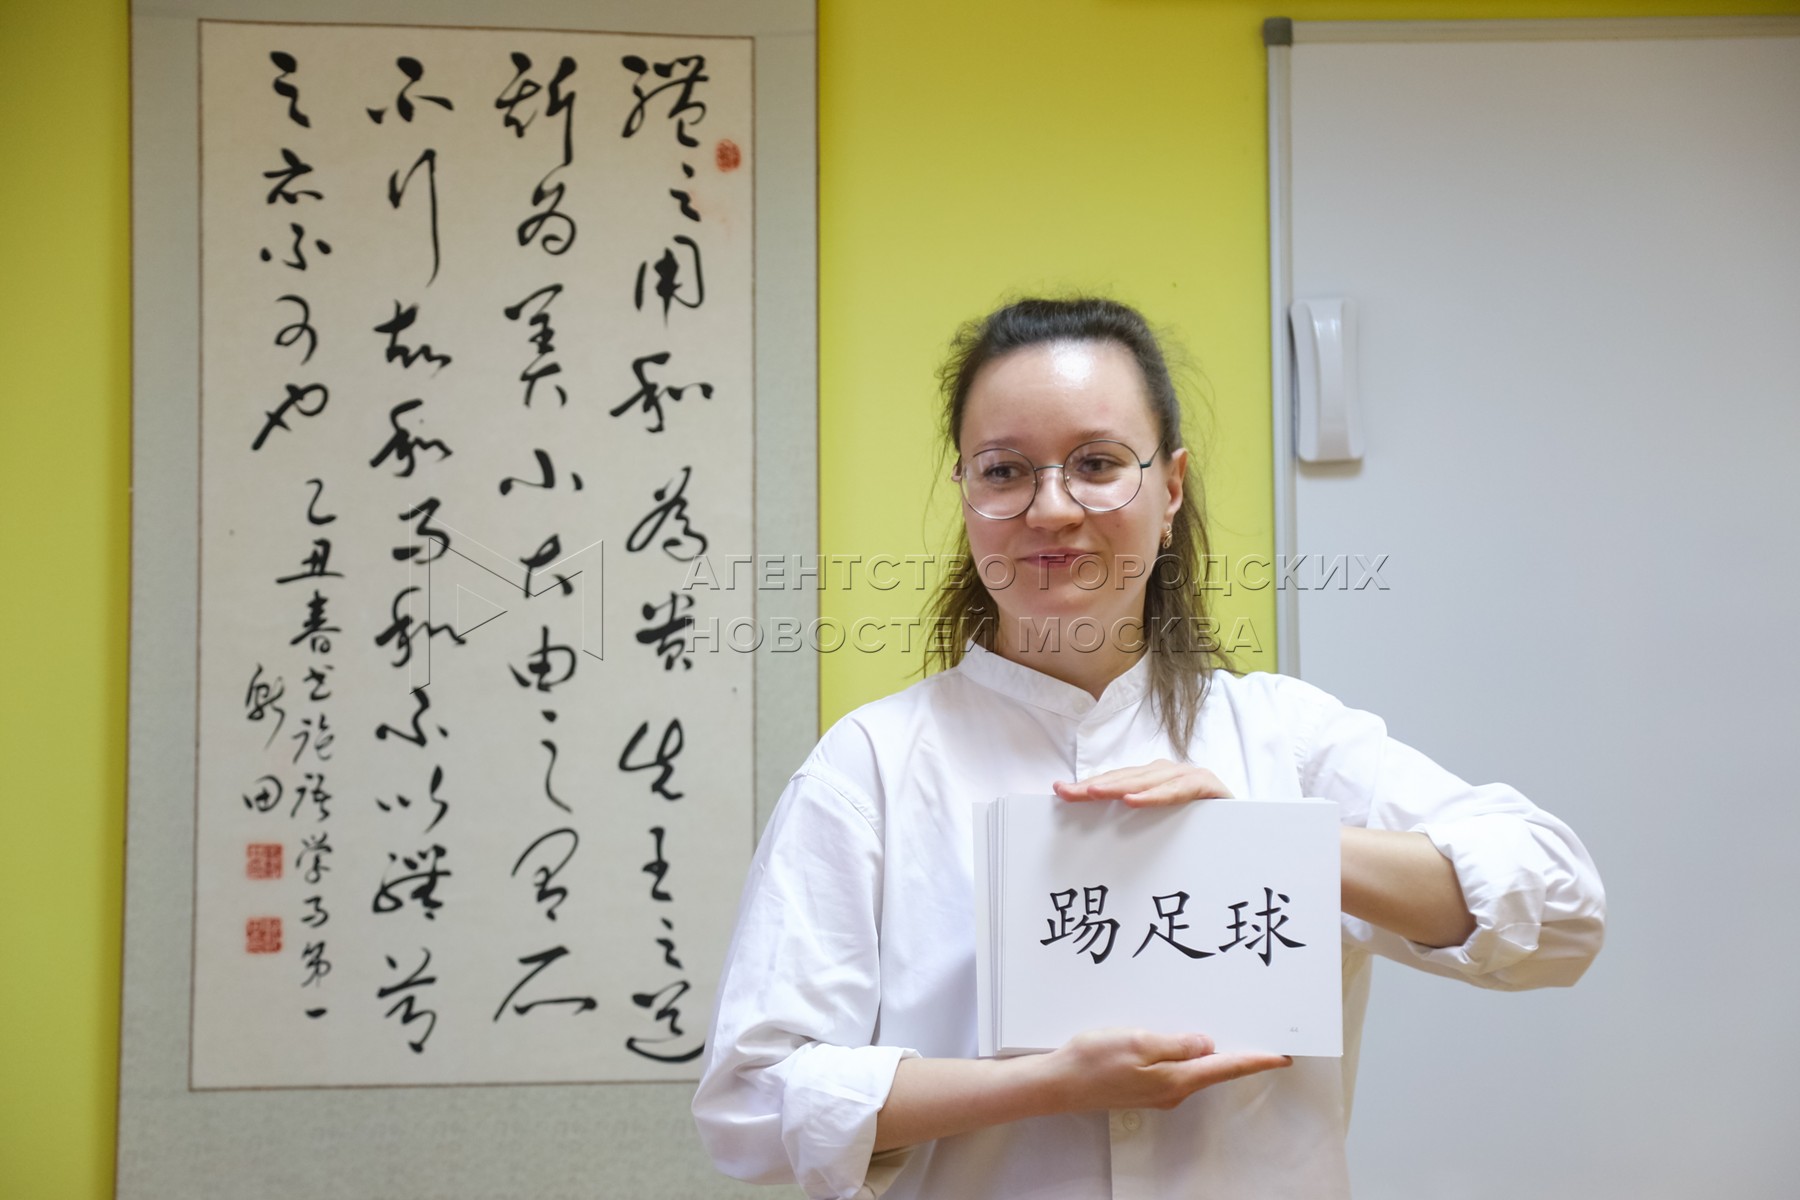 禮之用和為貴先王之道
斯为美小大由之有所
不行知和而和不以禮节
之亦不可也
乙丑春书论语学而第一
踢足球
АГЕНТСТВО ГОРОДСКИХ
НОВОСТЕЙ МОСКВА